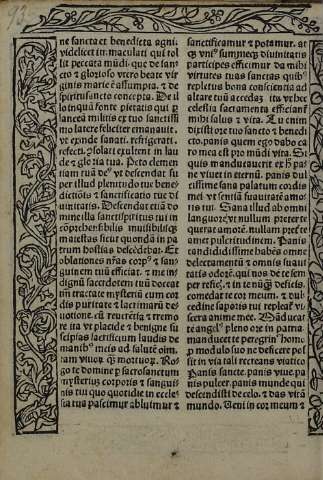 ne sancta et benedicta agni.
videlicet immaculati qui tol
lit peccata mūdi: que de san
cto & glorioso utero beate vir
ginis marie assumpta. & de
spiritu sancto concepta. De il
lo inquā fonte pietatis qui ꝑ
lancea militis ex tuo sanctissi
mo latere feliciter emanauit.
vt exinde sanari. refrigerari.
refici. & solari exultent in lau
de & gloria tua. Peto clemen
tiam tuā dñe vt descendat su
per illud plenitudo tue bene
dictiōis & sanctificatio tue di
uinitatis. Descendat etiā do
mine illa sanctispiritus tui in
cōprehensibilis inuisibilisq̄
maiestas sicut quondā in pa
trum hostias descēdebat. Et
oblationes nr̄as corpꝰ & san
guinem tuū efficiat. & me in
dignū sacerdotem tuū doceat
tm̄ tractare mysteriū cum cor
dis puritate & lachrimarū de
uotione. cū reuerētia & tremo
re ita vt placide & benigne su
scipias sacrificium laudis de
manibꝰ meis ad salutē oim̄.
tam viuoꝝ q̄ȝ mortuoꝝ. Ro
go te domine ꝑ sacrosanctum
mysterius corporis & sangui
nis tui quo quotidie in eccle
sia tua pascimur abluimur &
sanctificamur & potamur. at
participes efficimur da mihi
virtutes tuas sanctas quibꝰ
repletus bona conscientia ad
altare tuū accedas ita vt hec
celestia sacramenta efficiant̄
mihi salus & vita. Tu enim
dixisti ore tuo sancto & benedi
cto. panis quem ego dabo ca
ro mea est pro mūdi vita. Si
quis manducauerit ex h̄ pa
ne viuet in eternū. panis dul
cissime sana palatum cordis
mei vt sentiā suauitatē amo
ris tui. Sana illud ab omni
languore vt nullum preter te
querat amorē. nullam preter te
amet pulcritudinem. Panis
candidissime habēs omne
delectamentū & omnis suaui
tatis odorē. qui nos de te sem
comedat te cor meum. & dul
cedine saporis tui repleat vi
scera anime mee. Māducat
te angelꝰ pleno ore in patria
manducet te peregrinꝰ homo
ꝑ modulo suo ne deficere pos
sit in via tali recreatus viatico
Panis sancte. panis viue. pa
nis pulcer. panis munde qui
descendisti de celo. & das vitā
mundo. Veni in cor meum &